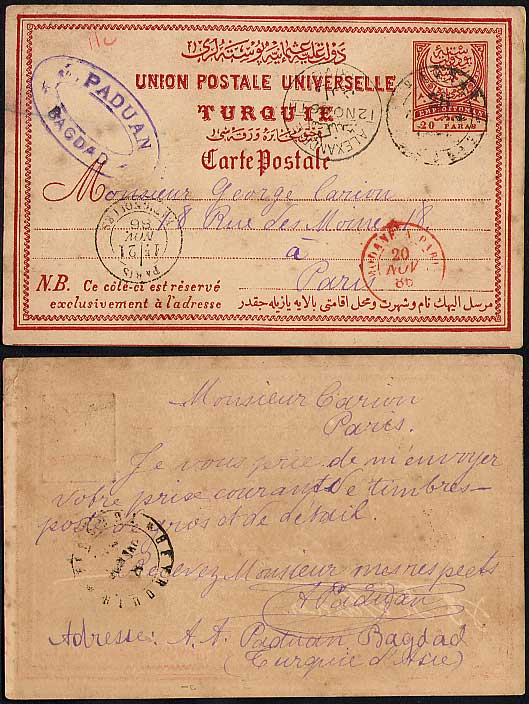 دولت علیهٔ عثمانیه پوسته لری
UNION POSTALE UNIVERSELLE
TURQUIE
Carte Postale
20 PARAS
PADUAN
BAGDAD
12 NO
Monsieur George Carion
18 Rue des Moines 18
à
Paris
PARIS
NOV
86
20
NOV
86
N.B. Ce côté-ci est réservé
exclusivement à l'adresse
مرسل الیهك نام و شهرت و محل اقامتی بالایه یازیله جقدر
Monsieur Carion
Paris.
Je vous prie de m'envoyer
votre prix courante de timbres-
poste de gros et de detail.
Recevez Monsieur mes respects
A Paduan
Adresse: A. A. Paduan Bagdad
(Turquie d'Asie)
BEYROUTH